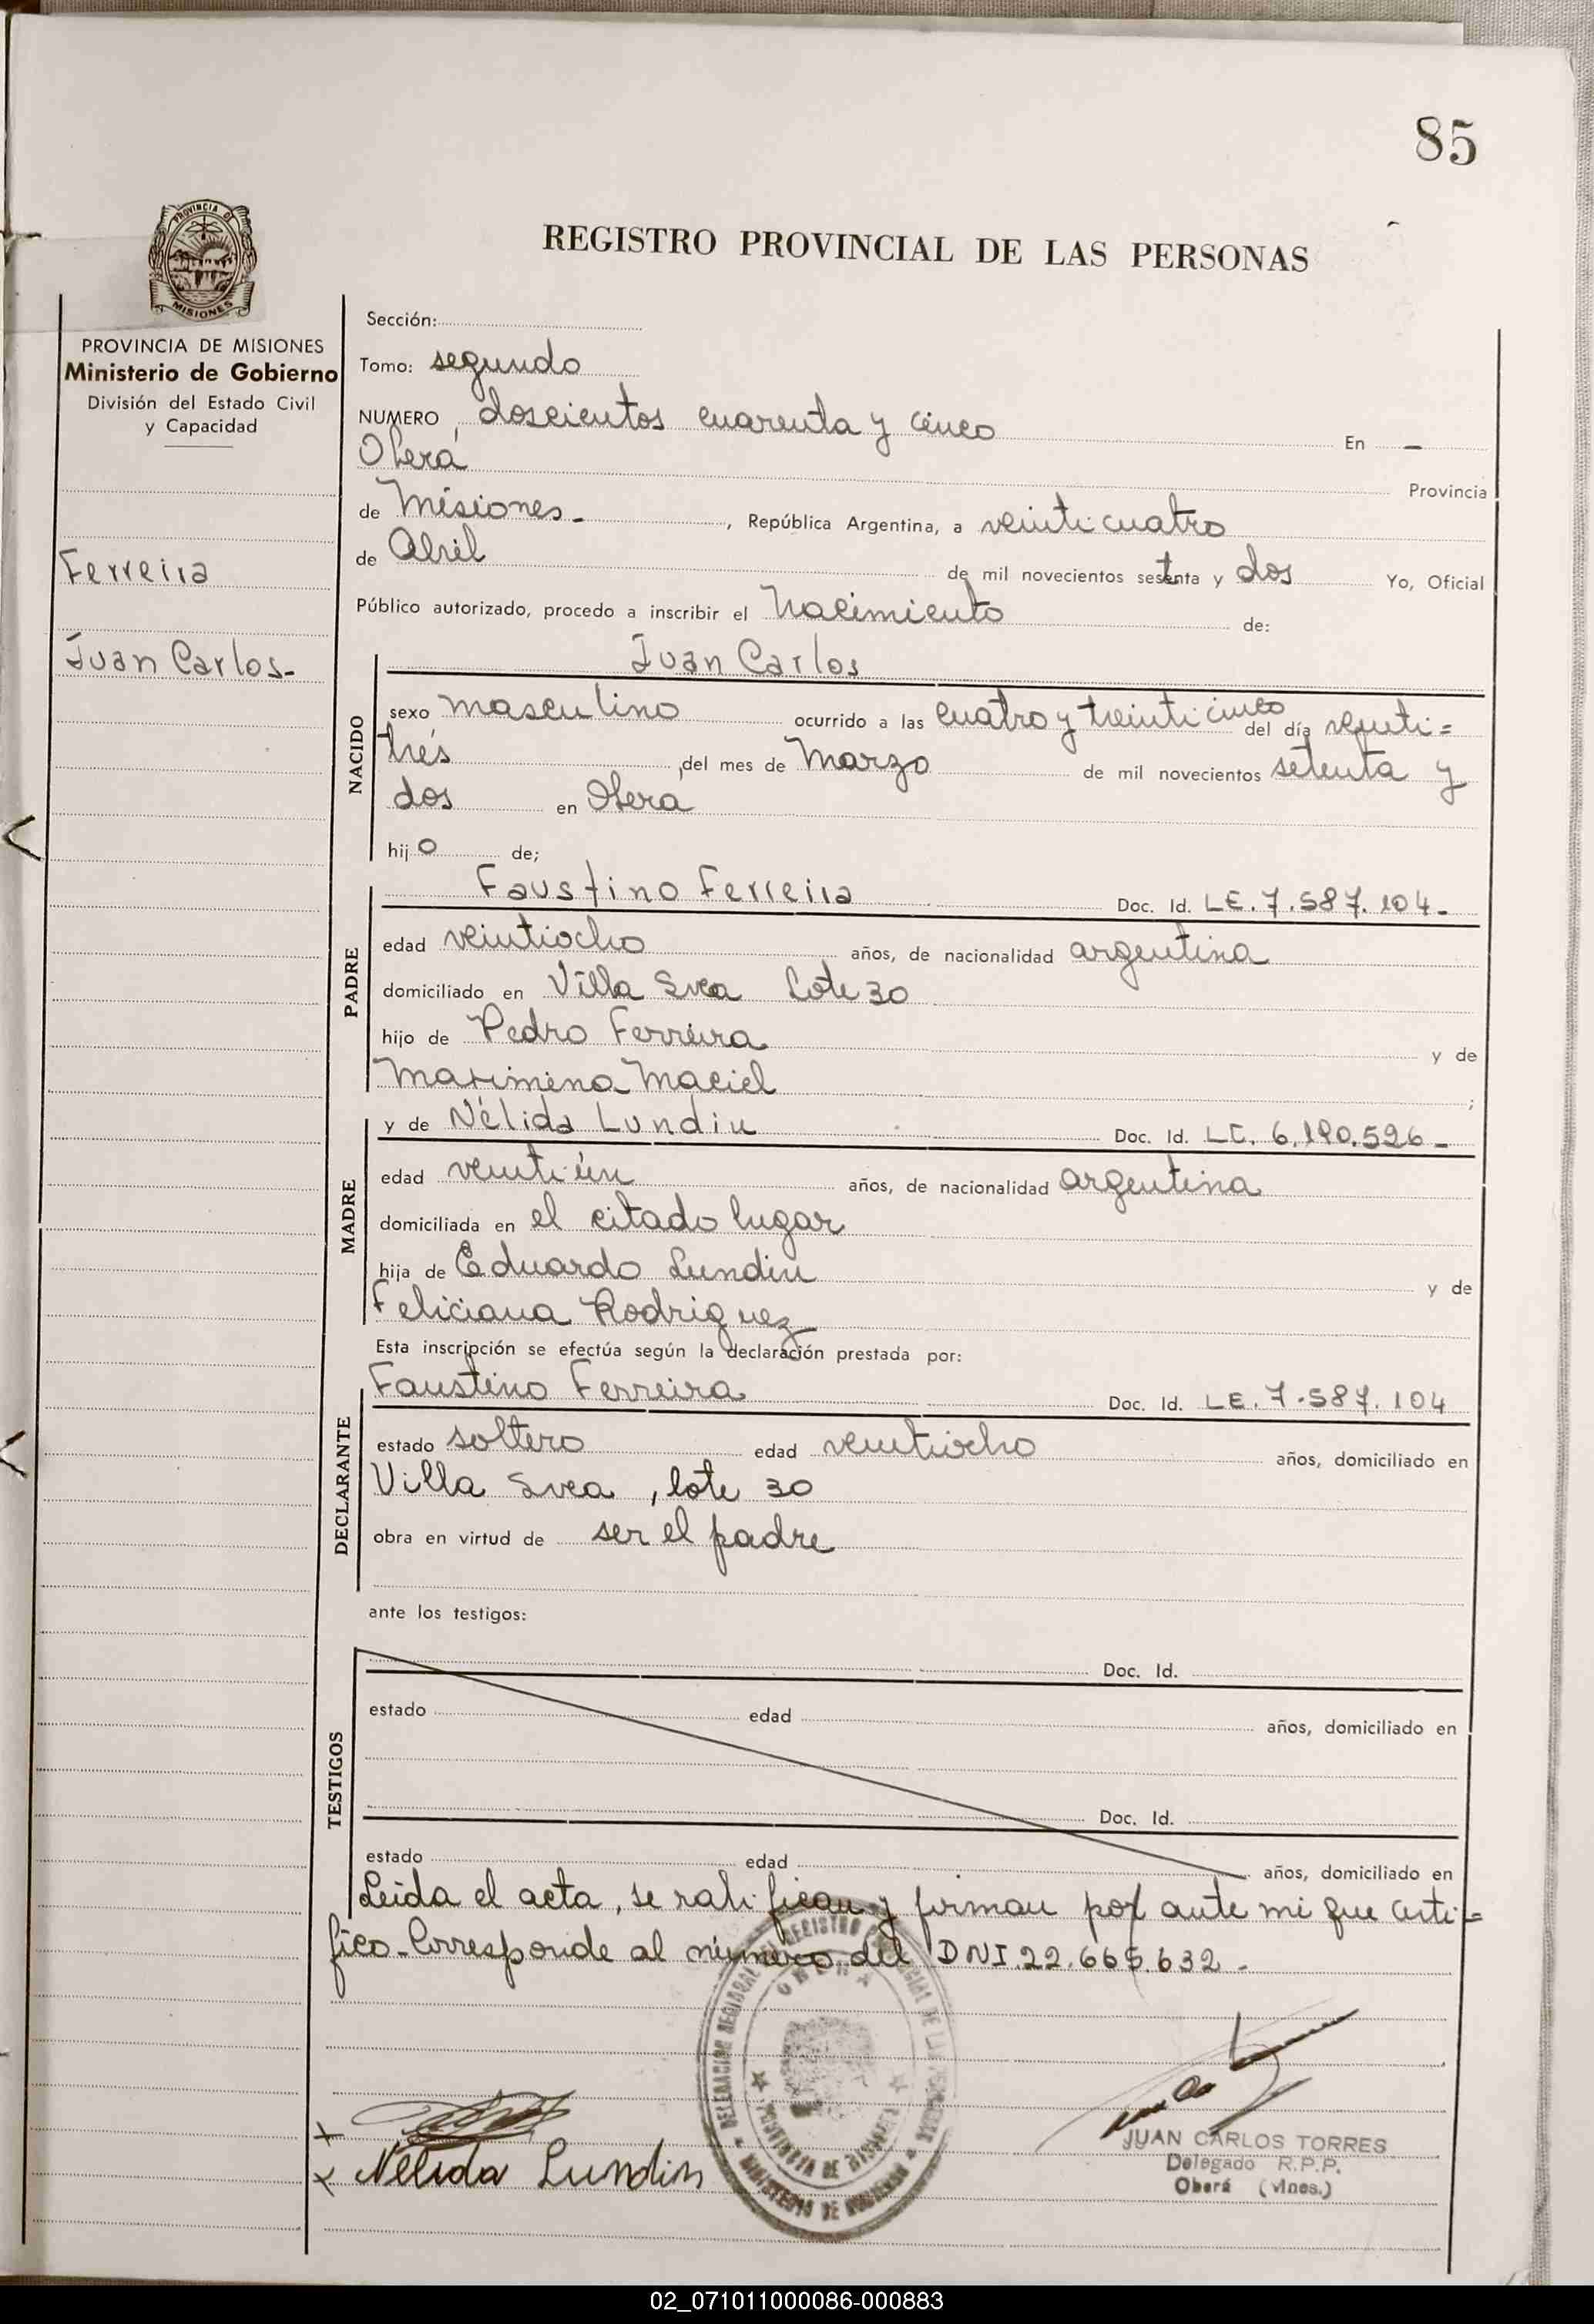 85
REGISTRO PROVINCIAL DE LAS PERSONAS
PROVINCIA DE
MISIONES
PROVINCIA DE MISIONES
Ministerio de Gobierno
División del Estado Civil
y Capacidad
Ferreira
Juan Carlos-
Sección:
Tomo: segundo
NUMERO, doscientos cuarenta y cinco En -
Oberá Provincia
de Misiones-, República Argentina, a veinticuatro
de Abril de mil novecientos setenta y dos Yo, Oficial
Público autorizado, procedo a inscribir el Nacimiento de:
NACIDO
Juan Carlos
sexo masculino ocurrido a las cuatro y treinticinco del día veinti=
trés del mes de Marzo de mil novecientos setenta y
dos en Obera
hijo de;
PADRE
Faustino Ferreira Doc. Id. LE. 7.587.104-
edad veintiocho años, de nacionalidad argentina
domiciliado en Villa Svea Lote 30
hijo de Pedro Ferreira y de
Maximina Maciel ;
MADRE
y de Nélida Lundin Doc. Id. LC. 6.190.526-
edad veintiún años, de nacionalidad argentina
domiciliada en el citado lugar
hija de Eduardo Lundin y de
Feliciana Rodriguez
Esta inscripción se efectúa según la declaración prestada por:
DECLARANTE
Faustino Ferreira Doc. Id. LE. 7.587.104
estado soltero edad veintiocho años, domiciliado en
Villa Svea, lote 30
obra en virtud de ser el padre
ante los testigos:
TESTIGOS
Doc. Id.
estado edad años, domiciliado en
Doc. Id.
estado edad años, domiciliado en
Leida el acta, se ratifican y firman por ante mi que certi=
fico-Corresponde al número del DNI.22.665.632-
DELEGACION REGIONAL REGISTRO PROVINCIAL DE LAS PERSONAS
OBERA
PROVINCIA DE MISIONES
MINISTERIO DE GOBIERNO
x
x Nelida Lundin
JUAN CARLOS TORRES
Delegado R.P.P.
Oberá (Mnes.)
02_071011000086-000883